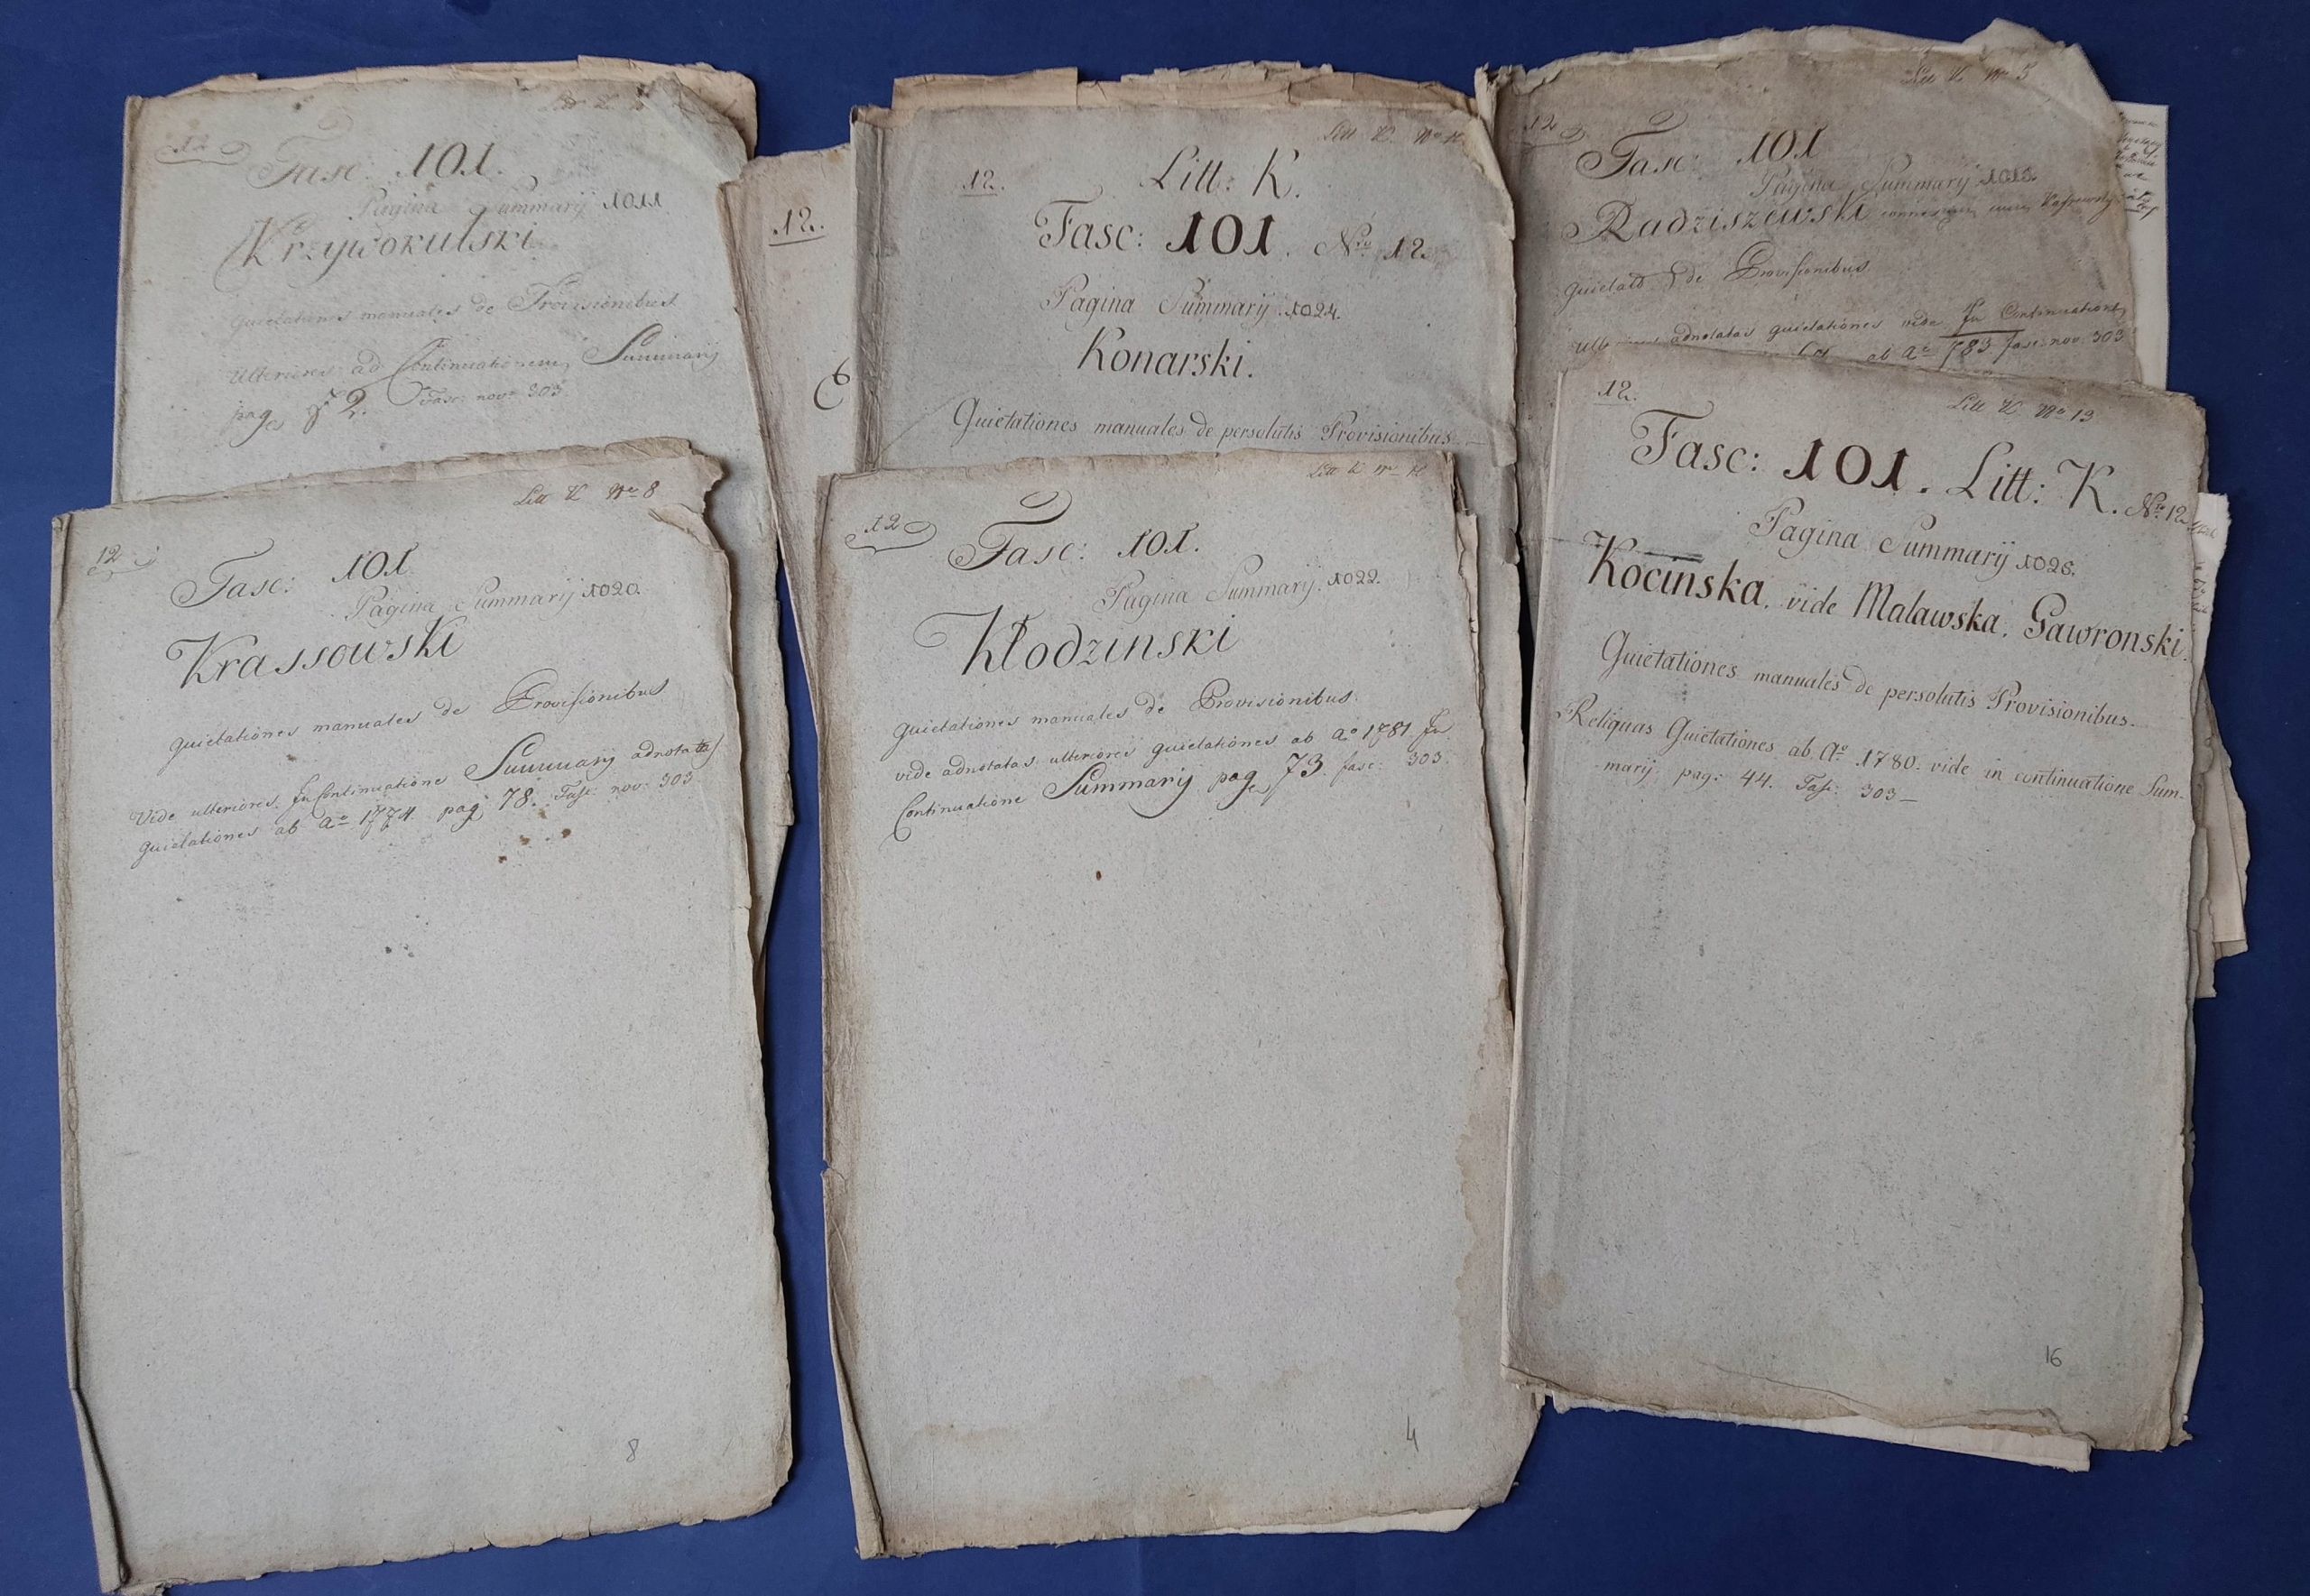 12
Fasc: 101.
Pagina Summarij 1011
Krzywokulski
Quietationes manuales de Provisionibus
Ulteriores ad Continuationem Summarij
pag 2. Fasc: nov: 303.
12.
Litt K No
12.
Litt: K.
Fasc: 101. Nro 12.
Pagina Summarij 1024.
Konarski.
Quietationes manuales de persolutis Provisionibus.
Litt K No 5
12
Fasc: 101
Pagina Summarij
Radziszewski
de Provisionibus
adnotatas quietationes vide In Continuatione
ab Ao 783 fasc: nov: 303
Litt K No 8
12
Fasc: 101
Pagina Summarij 1020.
Krassowski
Quietationes manuales de Provisionibus
Vide ulteriores In Continuatione Summarij adnotatas
quietationes ab Ao 1774 pag 78. Fasc: nov: 303
Litt K No
12
Fasc: 101.
Pagina Summarij. 1022.
Kłodzinski
Quietationes manuales de Provisionibus.
vide adnotatas ulteriores quietationes ab Ao 1781 In
Continuatione Summarij pag 73. fasc: 303.
Litt K No 13
12.
Fasc: 101. Litt: K. No 12
Pagina Summarij
Kocinska, vide Malawska, Gawronski.
Quietationes manuales de persolutis Provisionibus.
Reliquas Quietationes ab Ao 1780. vide in continuatione Sum-
marij pag: 44. Fasc: 303—
8
4
16